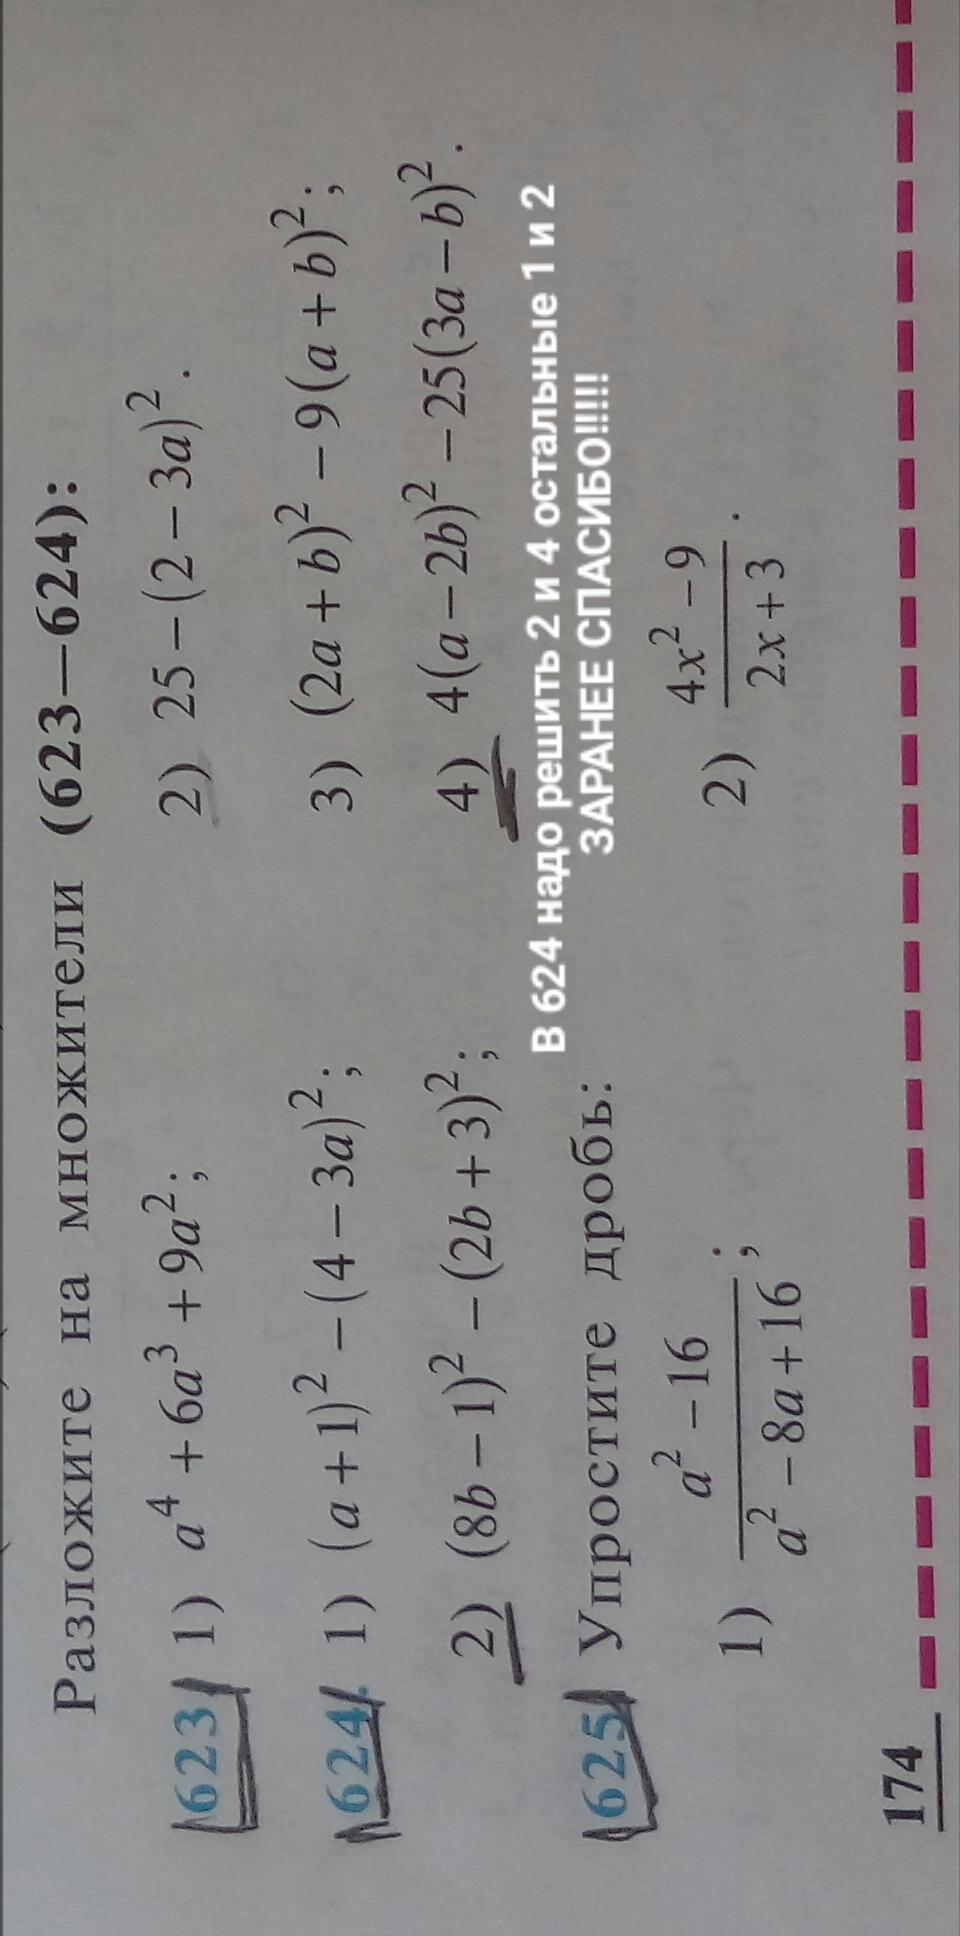 Разложите на множители (623—624):
623 1) a⁴ + 6a³ + 9a²; 2) 25 − (2 − 3a)².
624. 1) (a + 1)² − (4 − 3a)²; 3) (2a + b)² − 9(a + b)²;
2) (8b − 1)² − (2b + 3)²; 4) 4(a − 2b)² − 25(3a − b)².
В 624 надо решить 2 и 4 остальные 1 и 2
ЗАРАНЕЕ СПАСИБО!!!!!
625 Упростите дробь:
1) (a² − 16)/(a² − 8a + 16); 2) (4x² − 9)/(2x + 3).
174